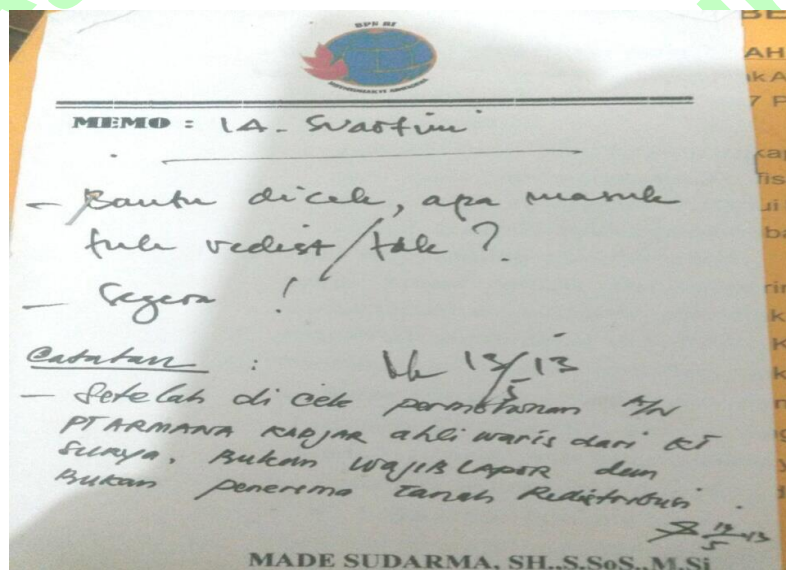 BPN RI
MEMO : IA. Swastini
- Bantu dicek, apa masuk
tnh redist/tdk ?
- Segera !
Catatan :
13/5 13
- Setelah di cek permohonan A/N
PT ARMANA KADJAR ahli waris dari KT
SURYA. Bukan WAJIB LAPOR dan
Bukan penerima Tanah Redistribusi.
13/5-13
MADE SUDARMA, SH.,S.SoS.,M.Si
BE
AH
7 P